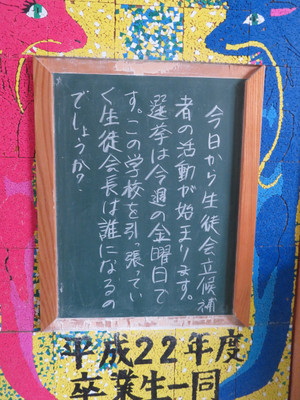 今日から生徒会立候補
者の活動が始まります。
選挙は今週の金曜日で
す。この学校を引っ張ってい
く生徒会長は誰になるの
でしょうか？
平成22年度
卒業生一同